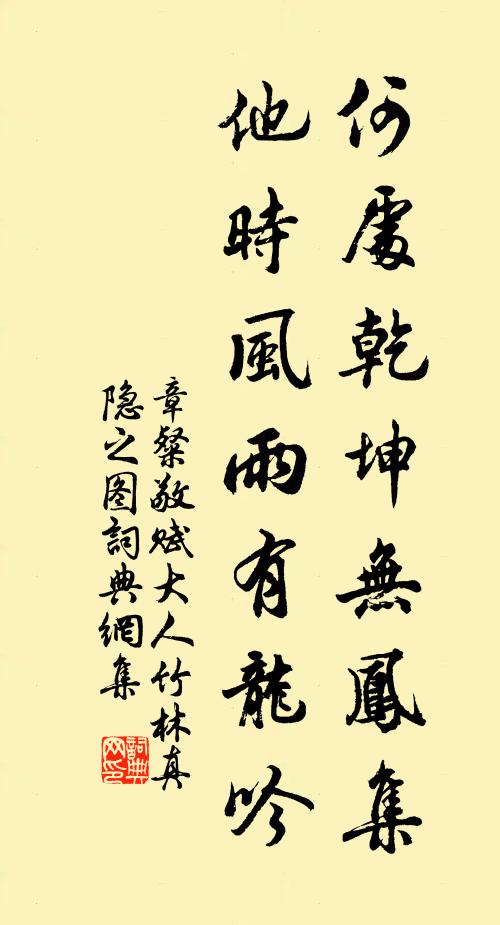 何處乾坤無鳳集
他時風雨有龍吟
章粲敬賦大人竹林真
隐之图詞典網集
詞典網印